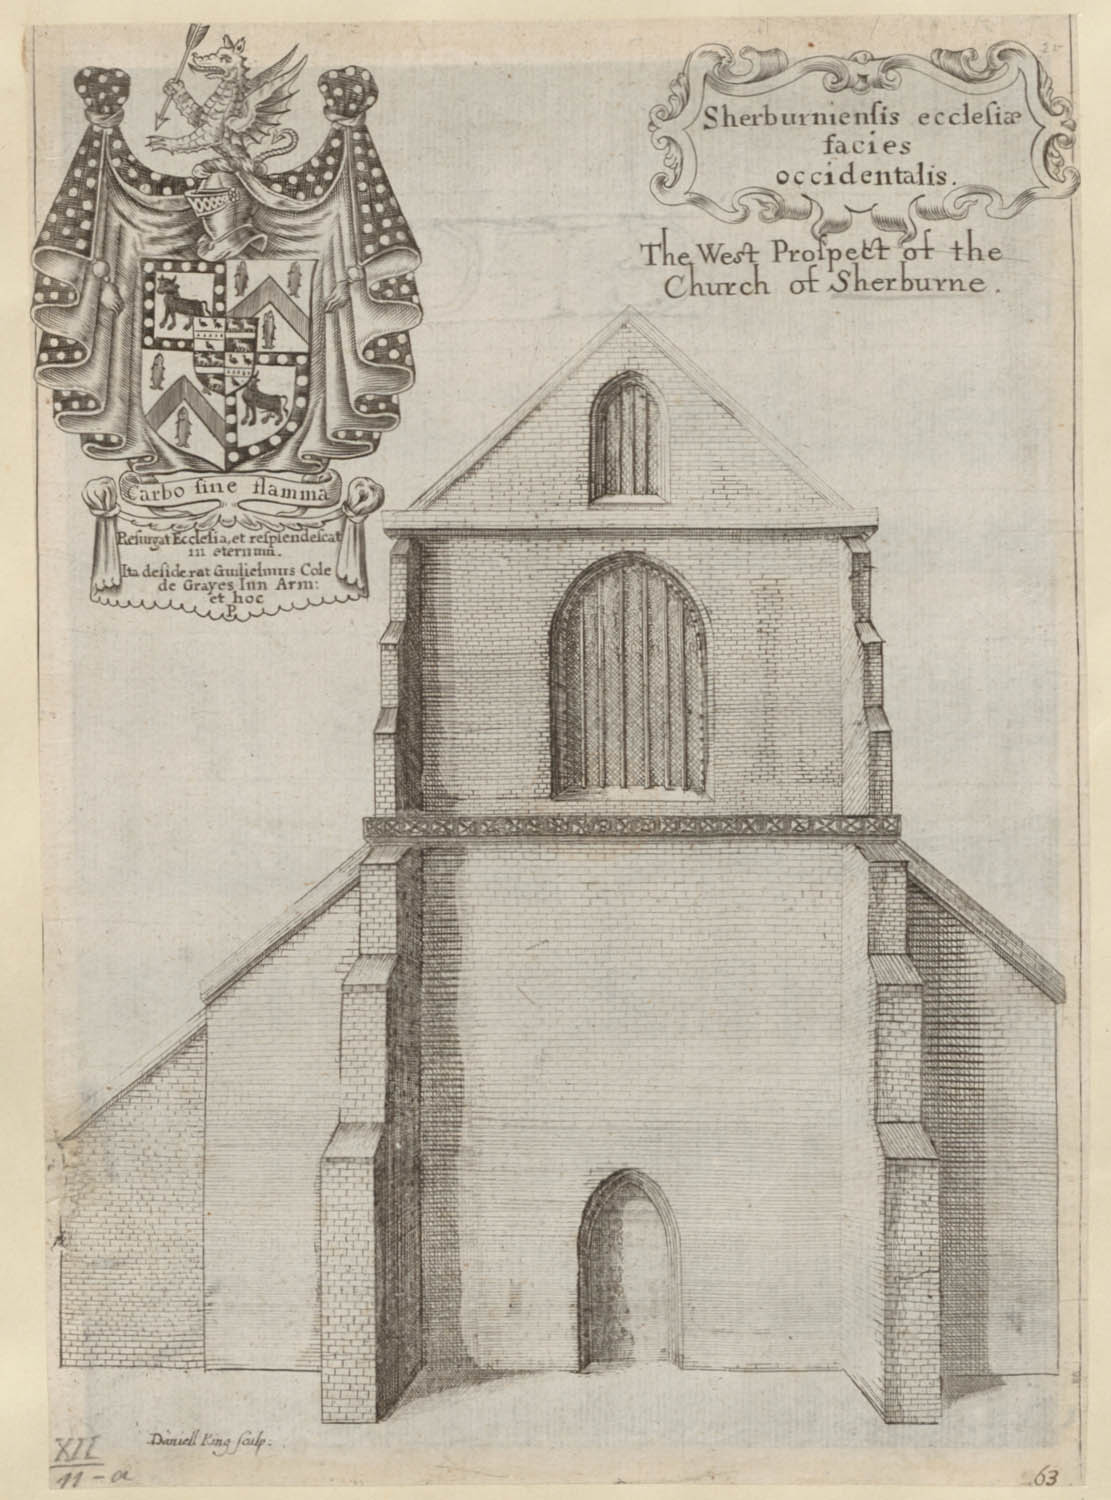 Sherburniensis ecclesiæ
facies
occidentalis.
The West Prospect of the
Church of Sherburne.
Carbo sine flamma
Resurgat Ecclesia, et resplendescat
in eternum.
Ita desiderat Guilielmus Cole
de Grayes Inn Arm:
et hoc
P.
Daniell King sculp.
XII
11-a
63